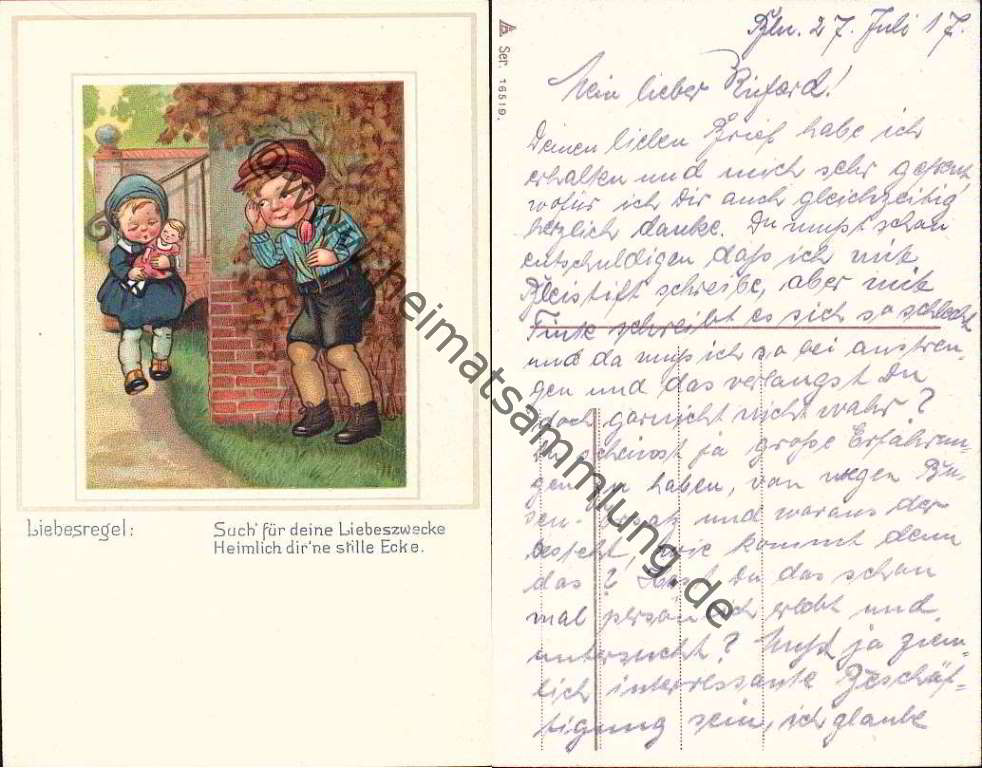 Liebesregel:
Such' für deine Liebeszwecke
Heimlich dir'ne stille Ecke.
© www.heimatsammlung.de
Ser. 16519.
Bln. 27. Juli 17.
Mein lieber Richard!
Deinen lieben Brief habe ich
erhalten und mich sehr gefreut,
wofür ich Dir auch gleichzeitig
herzlich danke. Du mußt schon
entschuldigen daß ich mit
Bleistift schreibe, aber mit
Tinte schreibt es sich so schlecht
und da muß ich so bei anstren-
gen und das verlangst Du
doch garnicht nicht wahr?
Du scheinst ja große Erfahrun-
gen zu haben, von wegen Bu-
sen-Ersatz und woraus der
besteht, wie kommt denn
das? Hast Du das schon
mal persönlich erlebt und
untersucht? Muß ja ziem-
lich interessante Beschäf-
tigung sein, ich glaube